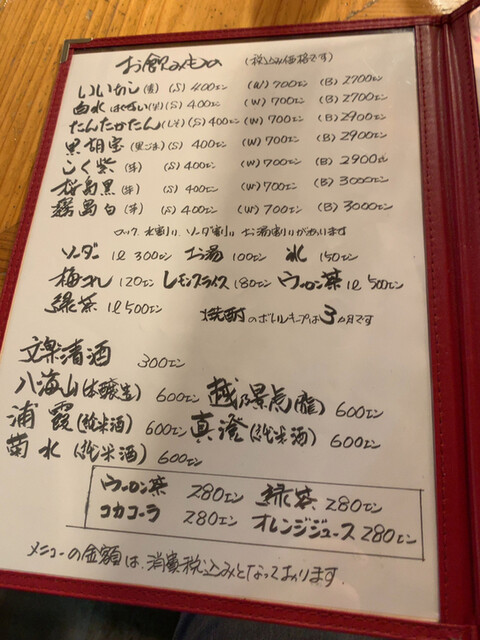 お飲みもの (税込み価格です)
いいかしら(麦) (S) 400エン (W) 700エン (B) 2700エン
白水 はくすい(麦) (S) 400エン (W) 700エン (B) 2700エン
たんたかたん(しそ) (S) 400エン (W) 700エン (B) 2900エン
黒胡宝(黒ごま) (S) 400エン (W) 700エン (B) 2900エン
こく紫(芋) (S) 400エン (W) 700エン (B) 2900エン
桜島黒(芋) (S) 400エン (W) 700エン (B) 3000エン
霧島白(芋) (S) 400エン (W) 700エン (B) 3000エン
ロック、水割り、ソーダ割り、お湯割りがあります
ソーダー 1ℓ 300エン お湯 100エン 氷 150エン
梅コれ 120エン レモンスライス 180エン ウーロン茶 1ℓ 500エン
緑茶 1ℓ 500エン 焼酎のボトルキープは3ヵ月です
文楽清酒 300エン
八海山(本醸生) 600エン 越乃景虎(龍) 600エン
浦霞(純米酒) 600エン 真澄(純米酒) 600エン
菊水(純米酒) 600エン
ウーロン茶 280エン 緑茶 280エン
コカコーラ 280エン オレンジジュース 280エン
メニューの金額は、消費税込みとなっております.